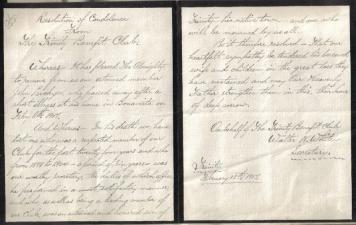 Resolution of Condolence
From
The Trinity Benefit Club.
Whereas It has pleased The Almighty
to remove from us our esteemed member
John who passed away after a
short illness at his home in Bonavista on
Feby
And whereas In his death we have
lost one who was a respected member of our
Club for the past twenty four years and who
from 1898 to 1908 a period of ten years was
our worthy Secretary, the duties of which office
he performed in a most satisfactory manner,
and who as well as being a leading member of
our Club, was an esteemed and honored son of
Trinity his native town and one who
will be mourned by us all.
Be it therefore resolved That our
heartfelt sympathy be tendered his bereaved
wife and children in the great loss they
have sustained and may Our Heavenly
Father strengthen them in this their hour
of deep sorrow.
On behalf of The Trinity Benefit Club
Walter White
Secretary
Trinity
February